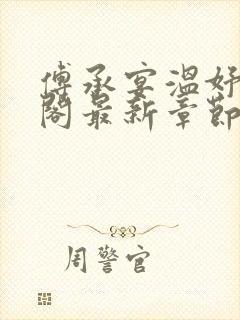 傅承宴溫妤
閣最新章節
周警官